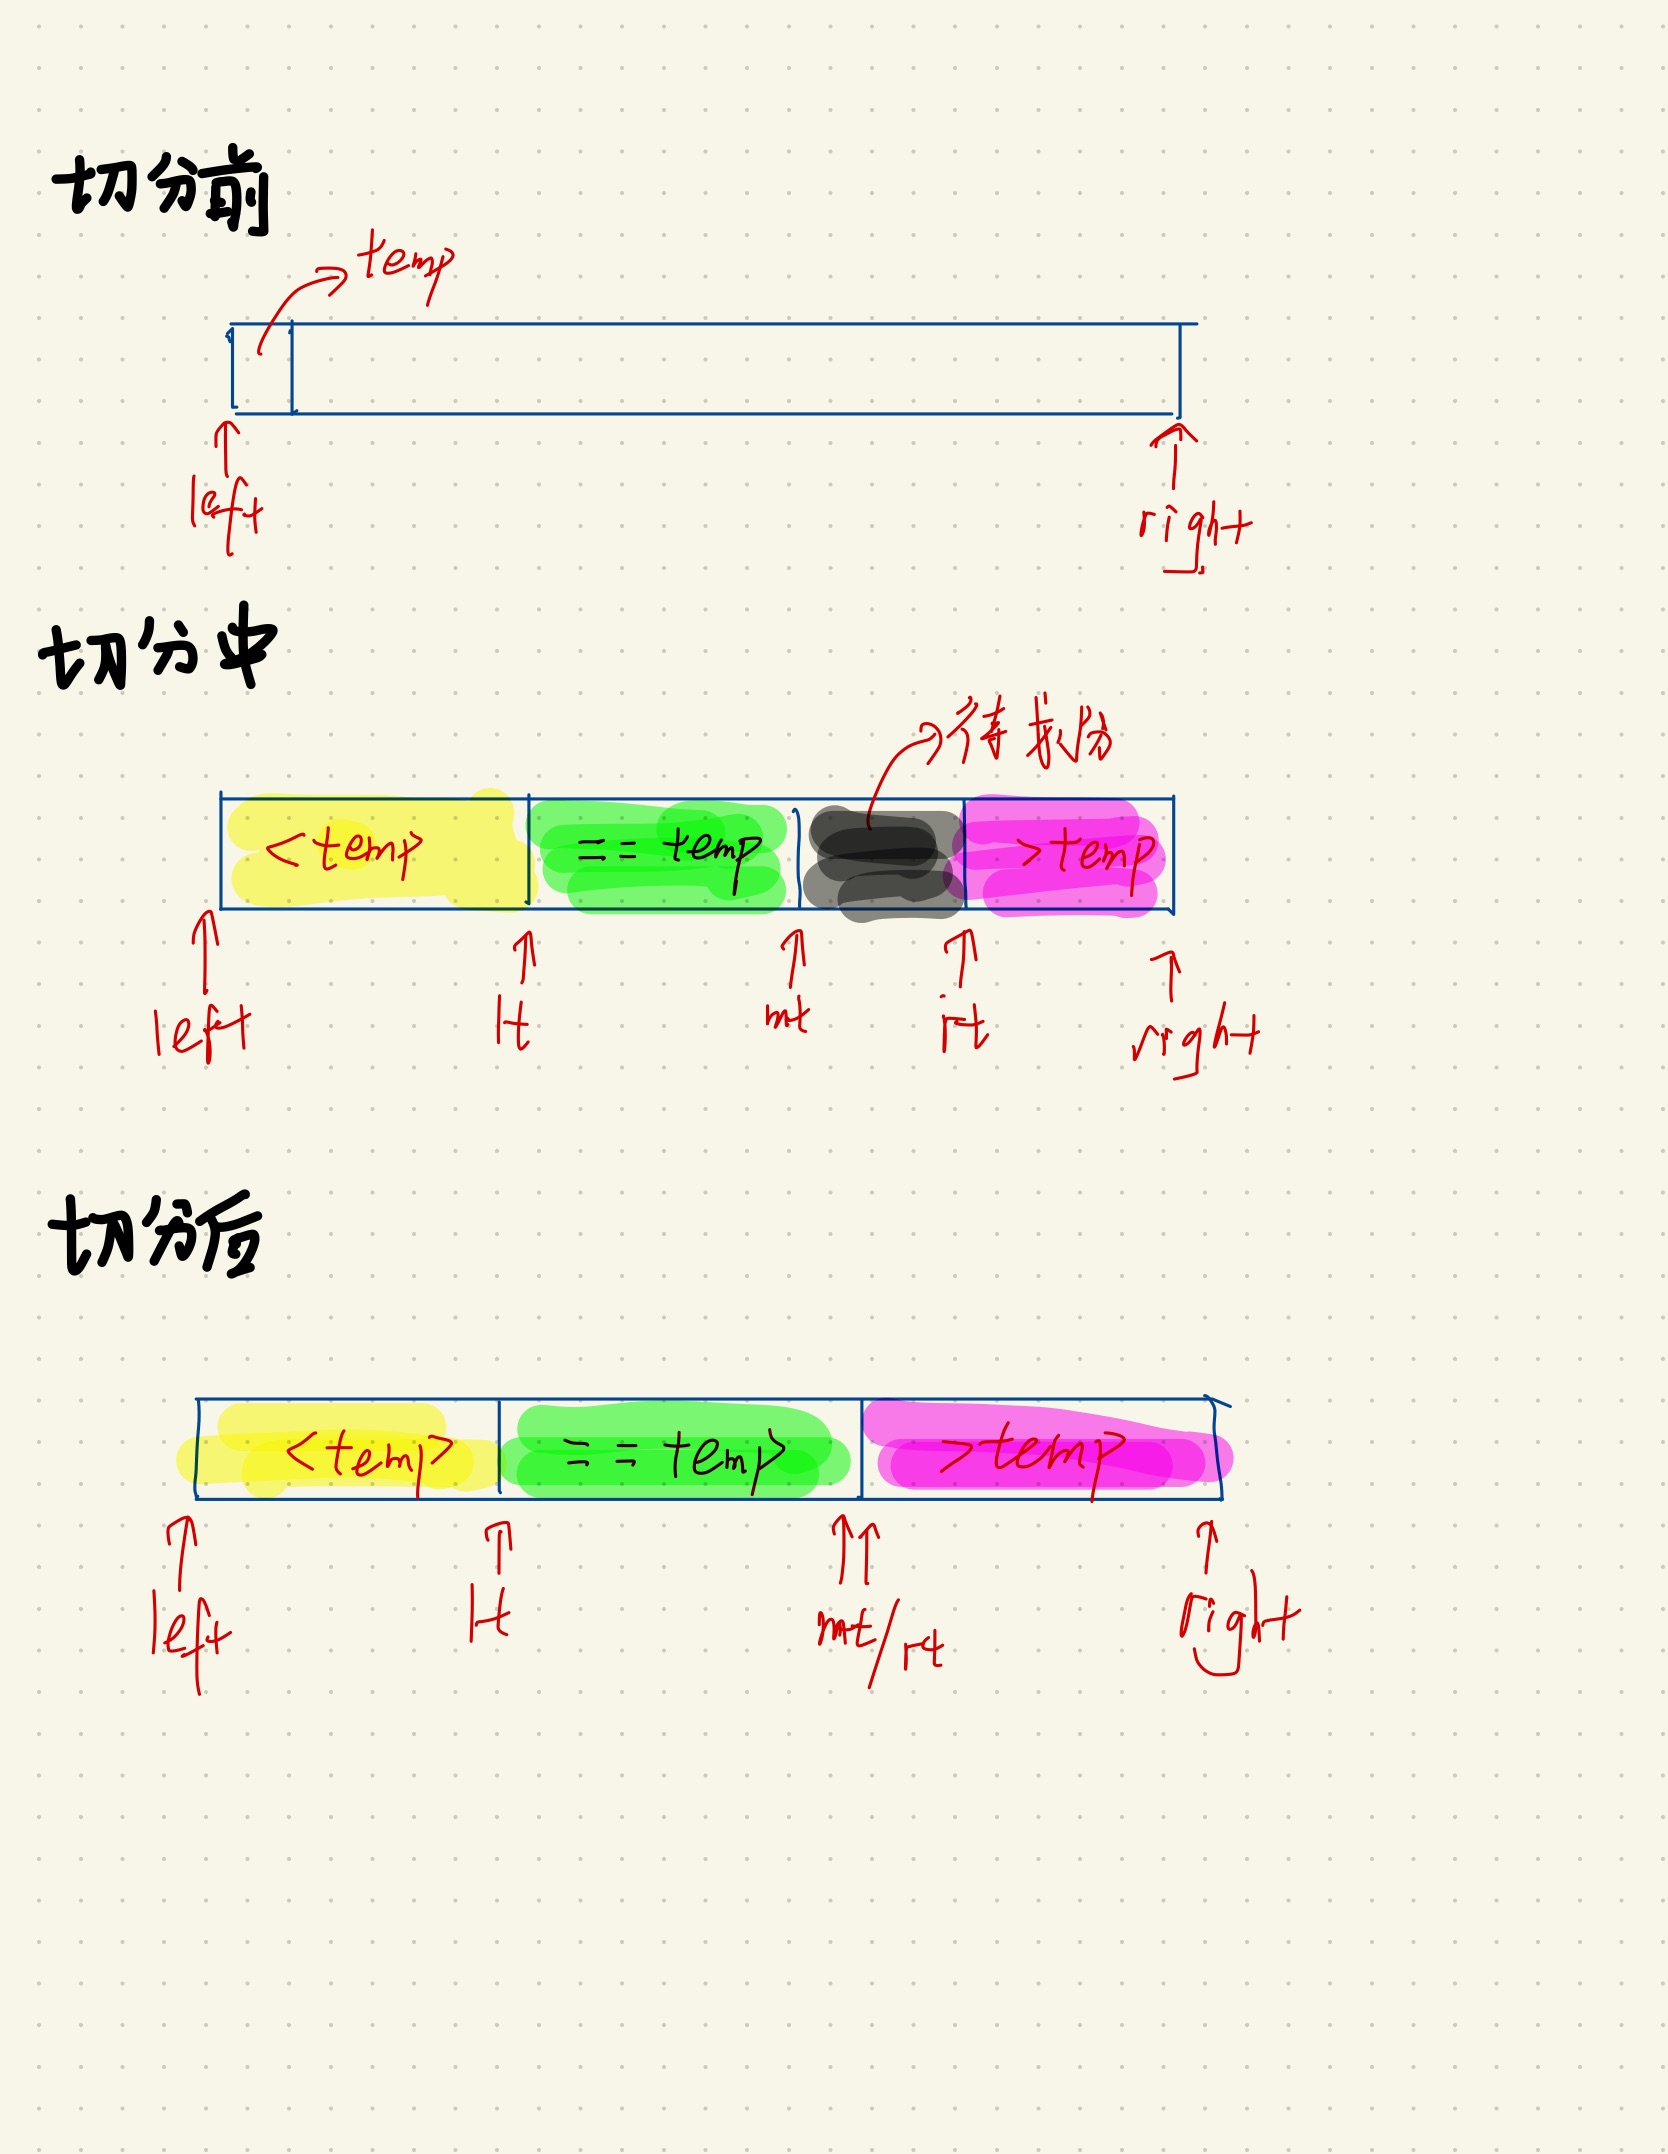 切分前
temp
left right
切分中
待切分
<temp == temp >temp
left lt mt rt right
切分后
<temp == temp >temp
left lt mt/rt right